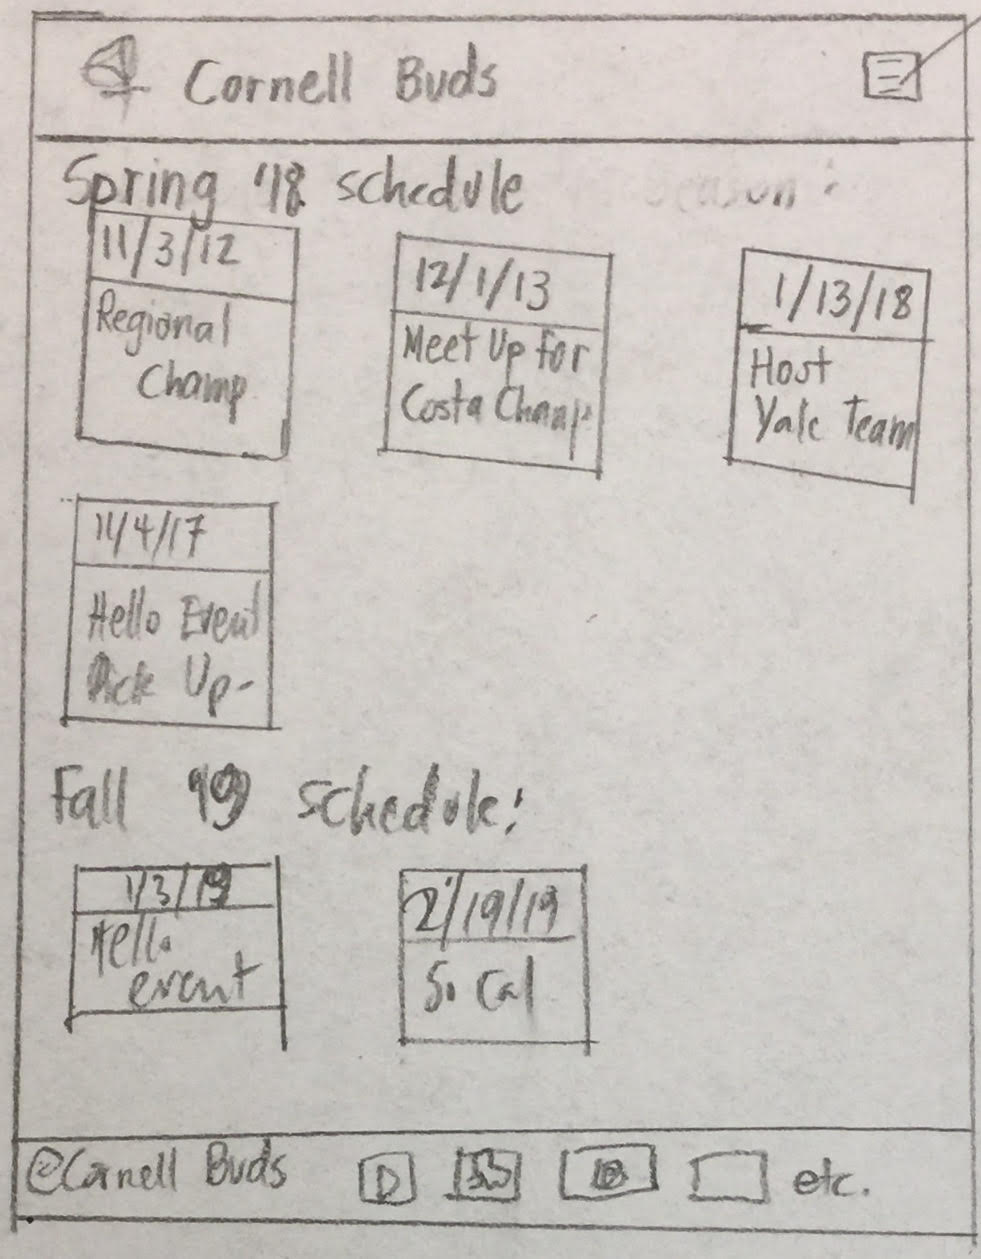 Cornell Buds
Spring '18 schedule
Season:
11/3/12
Regional
Champ
12/1/13
Meet Up for
Costa Champ
1/13/18
Host
Yale Team
11/4/17
Hello Event
Pick Up-
Fall 19 schedule:
1/3/19
Hello
event
2/19/19
So Cal
@Cornell Buds
etc.